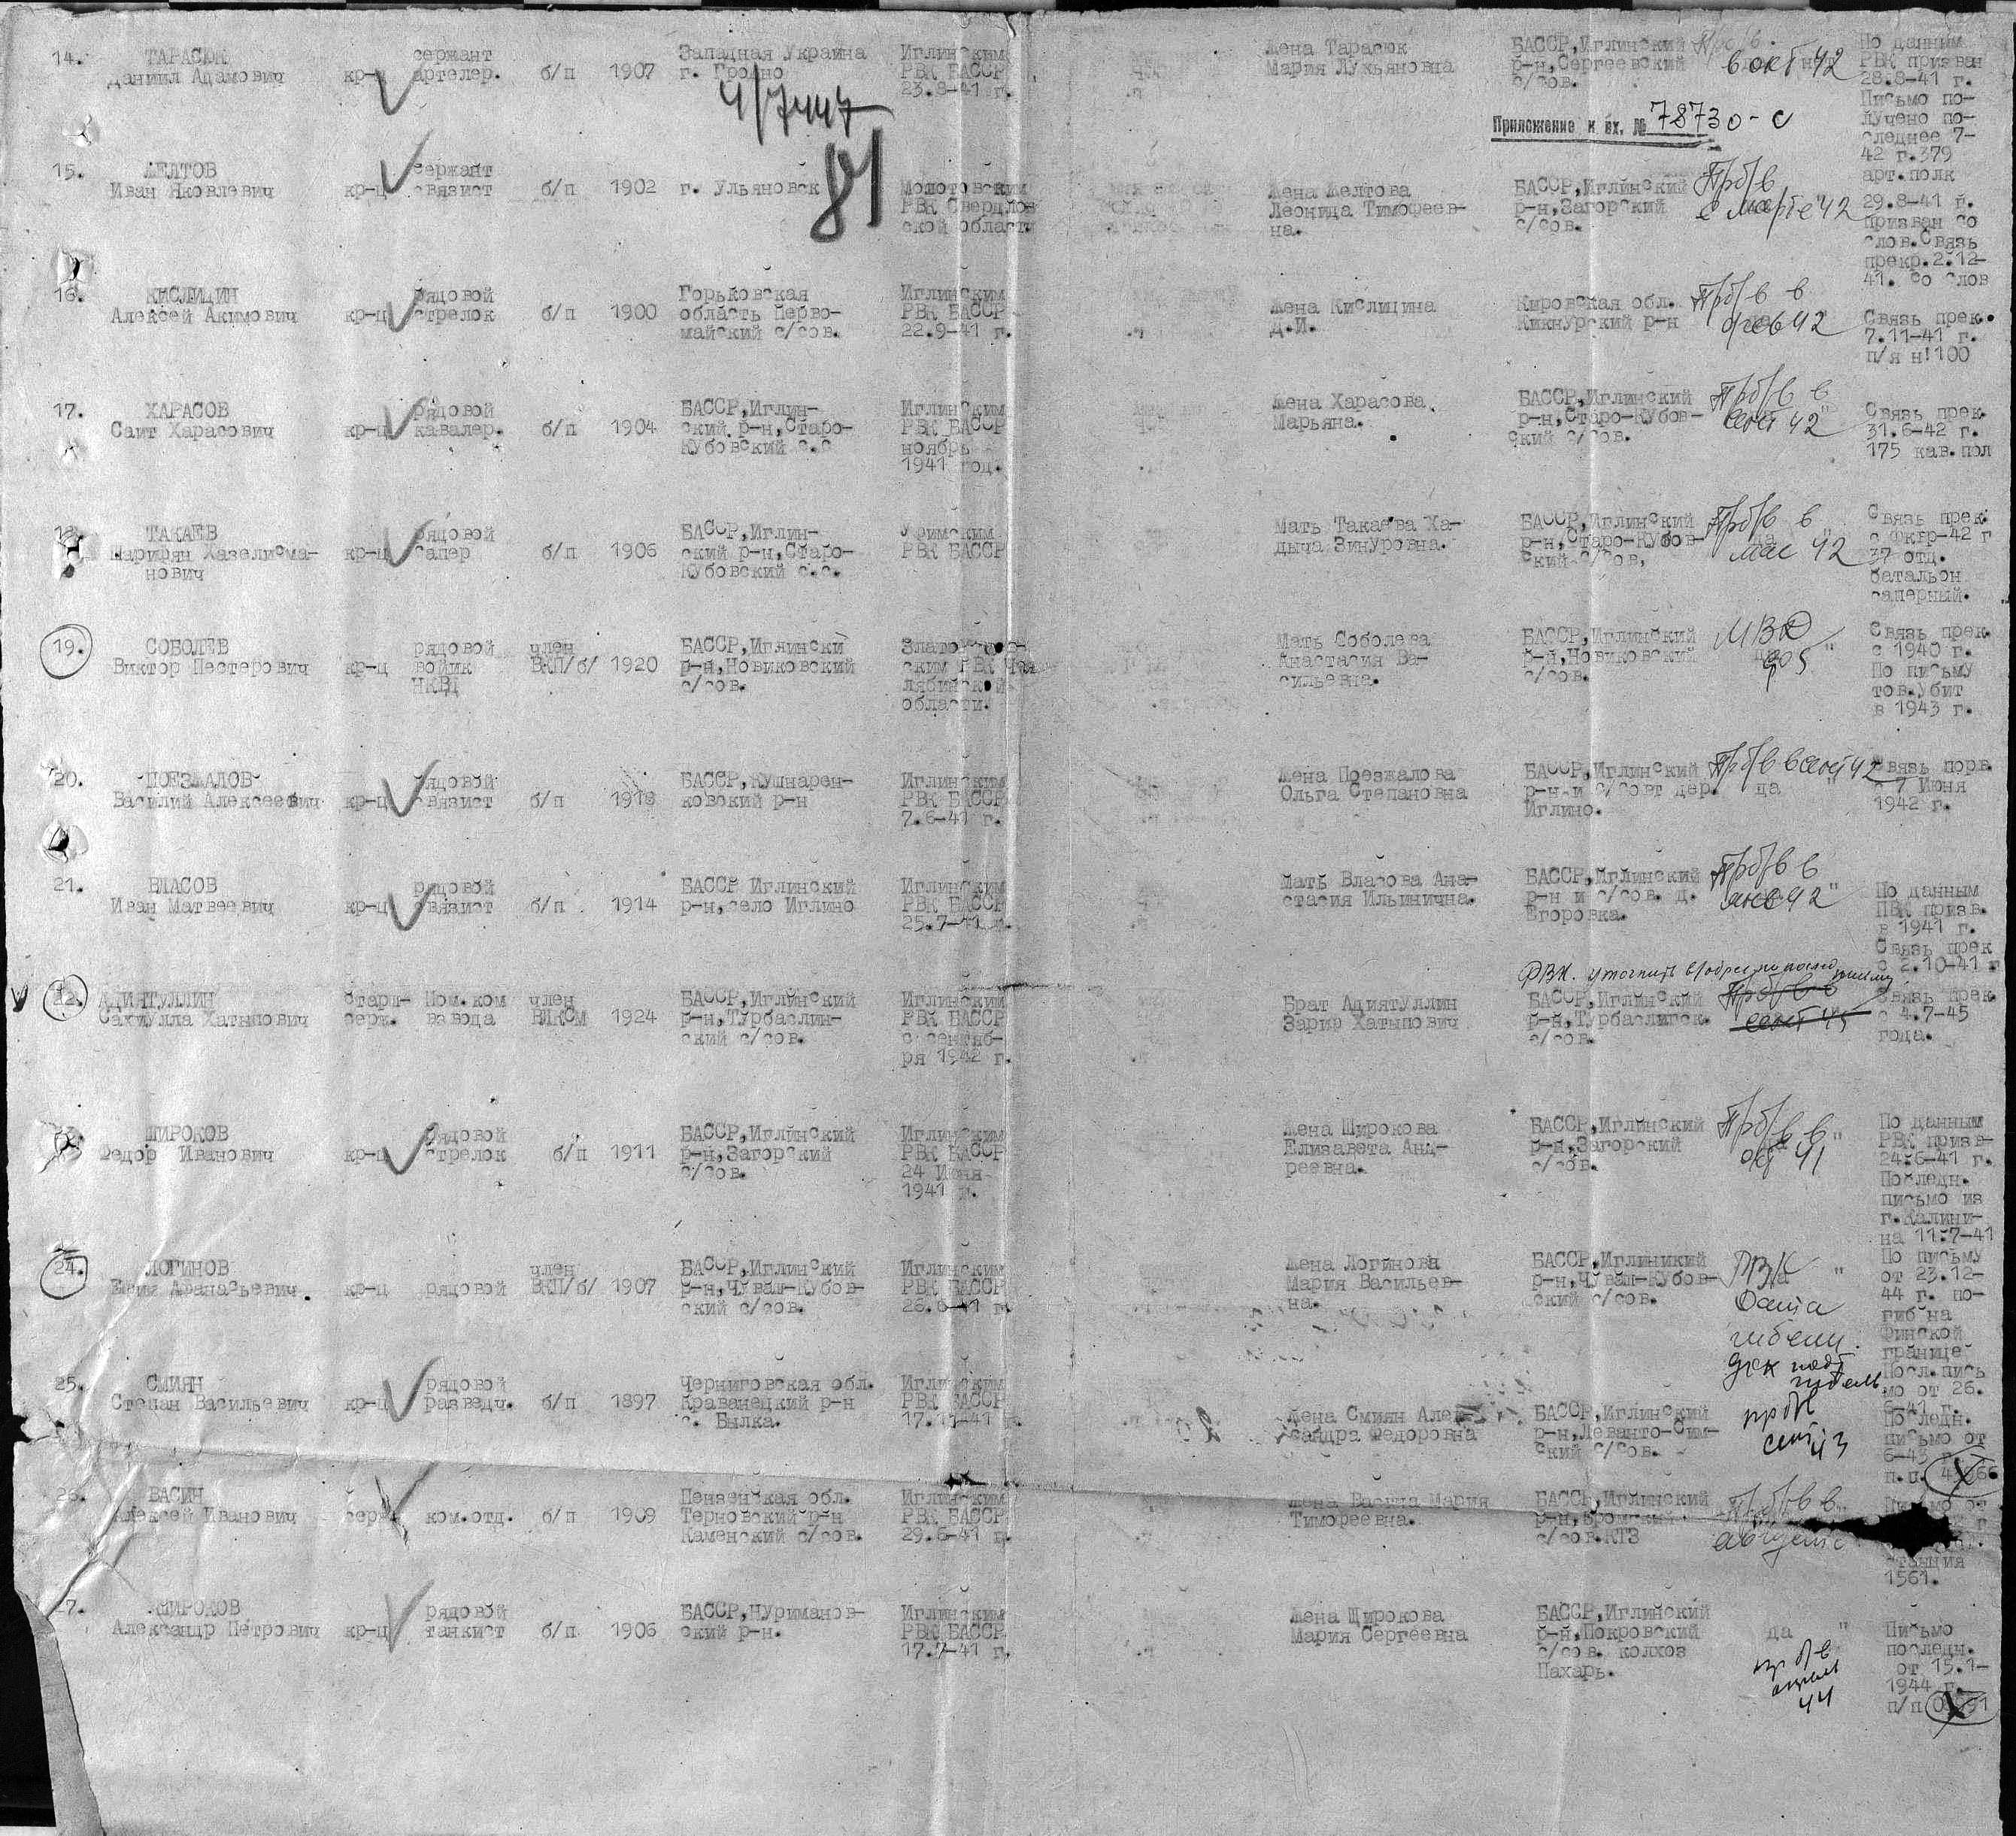 14. ТАРАСЮК сержант Западная Украина Иглинским Жена Тарасюк БАССР,Иглинский По данным
Даниил Адамович кр-ц артелер. б/п 1907 г. Гродно РВК БАССР Мария Лукьяновна р-н,Сергеевский в окт 42 РВК призван
23.8-41 г. с/сов. 28.8-41 г.
4/7447 Письмо по-
Приложение к вх. № 78730-с лучено по-
следнее 7-
81 42 г.379
арт.полк
15. ЖЕЛТОВ сержант Молотовским Жена Желтова БАССР,Иглинский Пр б/в 29.8-41 г.
Иван Яковлевич кр-ц связист б/п 1902 г. Ульяновск РВК Свердлов Леонида Тимофеев- р-н,Загорский в марте 42 призван со
ской области на. с/сов. слов.Связь
прекр.2.12-
41. со слов
16. КИСЛИЦИН рядовой Горьковская Иглинским Жена Кислицина Кировская обл. Пр б/в в Связь прек.
Алексей Акимович кр-ц стрелок б/п 1900 область Перво- РВК БАССР Д.И. Кикнурский р-н фев 42 7.11-41 г.
майский с/сов. 22.9-41 г. п/я н!100
17. ХАРАСОВ рядовой БАССР,Иглин- Иглинским Жена Харасова БАССР,Иглинский Пр б/в в Связь прек.
Саит Харасович кр-ц кавалер. б/п 1904 ский р-н,Старо- РВК БАССР Марьяна. р-н,Старо-Кубов- сент 42 " 31.6-42 г.
Кубовский с.с ноябрь ский с/сов. 175 кав.пол
1941 год.
18. ТАКАЕВ рядовой БАССР,Иглин- Уфимским Мать Такаева Ха- БАССР,Иглинский Пр б/в в Связь прек.
Шарифян Хазелисма- кр-ц сапер б/п 1906 ский р-н,Старо- РВК БАССР дыча Зинуровна. р-н,Старо-Кубов- да " мае 42 с Фкгр-42 г
нович Кубовский с.с. ский с/сов, 37 отд.
батальон
саперный.
19. СОБОЛЕВ рядовой член БАССР,Иглински Златоустов- Мать Соболева БАССР,Иглинский МВД Связь прек.
Виктор Нестерович кр-ц войик ВКП/б/ 1920 р-н,Новиковский ским РВК Че- Анастасия Ва- р-н,Новиковский да " с 1940 г.
НКВД с/сов. лябинской сильевна. с/сов. По письму
области. тов.Убит
в 1943 г.
20. ПОЕЗЖАЛОВ рядовой БАССР,Кушнарен- Иглинским Жена Поезжалова БАССР,Иглинский Пр б/в в сент 42 Связь порв.
Василий Алексеевич кр-ц связист б/п 1918 ковский р-н РВК БАССР Ольга Степановна р-н и с/совт дер. да " с 7 Июня
7.6-41 г. Иглино. 1942 г.
21. ВЛАСОВ рядовой БАССР Иглинский Иглинским Мать Власова Ана- БАССР,Иглинский Пр б/в в По данным
Иван Матвеевич кр-ц связист б/п 1914 р-н,село Иглино РВК БАССР стасия Ильинична. р-н и с/сов. д. янв 42 " ПВК призв.
25.7-41 г. Егоровка. в 1941 г.
Связь прек
РВК. уточнить с 2.10-41 г
22. АДИЯТУЛЛИН старш- Пом.ком член БАССР,Иглинский Иглинским Брат Адиятуллин БАССР,Иглинский Пр б/в в Связь прек.
Сахиулла Хатыпович серж. взвода ВЛКСМ 1924 р-н,Турбаслин- РВК БАССР Зарир Хатыпович р-н,Турбаслинск. сент 45 с 4.7-45
ский с/сов. с сентяб- с/сов. года.
ря 1942 г.
23. ШИРОКОВ рядовой БАССР,Иглинский Иглинским Жена Широкова БАССР,Иглинский Пр б/в в По данным
Федор Иванович кр-ц стрелок б/п 1911 р-н,Загорский РВК БАССР Елизавета Анд- р-н,Загорский 41 " РВК призв-
с/сов. 24 Июня реевна. с/сов. 24.6-41 г.
1941 г. Последн.
письмо из
г.Калини-
на 11.7-41
24. ЛОГИНОВ член БАССР,Иглинский Иглинским Жена Логинова БАССР,Иглиникий РВК По письму
Афанасьевич. кр-ц рядовой ВКП/б/ 1907 р-н,Чуваш-Кубов- РВК БАССР Мария Васильев- р-н,Чуваш-Кубов- да " от 23.12-
ский с/сов. 26.6-41 г. на. ский с/сов. дата 44 г. по-
гибели. гиб на
Финской
границе
25. СМИЯН рядовой Черниговская обл. Иглинским Посл.пись
Степан Васильевич кр-ц разведч. б/п 1897 Краванецкий р-н РВК БАССР мо от 26.
с. Былка. 17.11-41 г. Жена Смиян Алек- БАССР,Иглинский пр б/в 6-41 г.
сандра Федоровна р-н,Леванто-Сим- сент. 43 Последн.
ский с/сов. письмо от
6-43
п.п.
26. ВАСИН серж. Пензенская обл. Иглинским Жена Васина Мария БАССР,Иглинский Пр б/в в Письмо от
Алексей Иванович ком.отд. б/п 1909 Терновский р-н РВК БАССР Тимофеевна. р-н, августе
Каменский с/сов. 29.6-41 г. с/сов.КТЗ
1561.
27. ШИРОКОВ рядовой БАССР,Нуриманов- Иглинским Жена Щирокова БАССР,Иглинский
Александр Петрович кр-ц танкист б/п 1906 ский р-н. РВК БАССР Мария Сергеевна р-н,Покровский да " Письмо
17.7-41 г. с/сов. колхоз пр б/в последн.
Пахарь. апреле от 15.1-
44 1944 г.
п/п